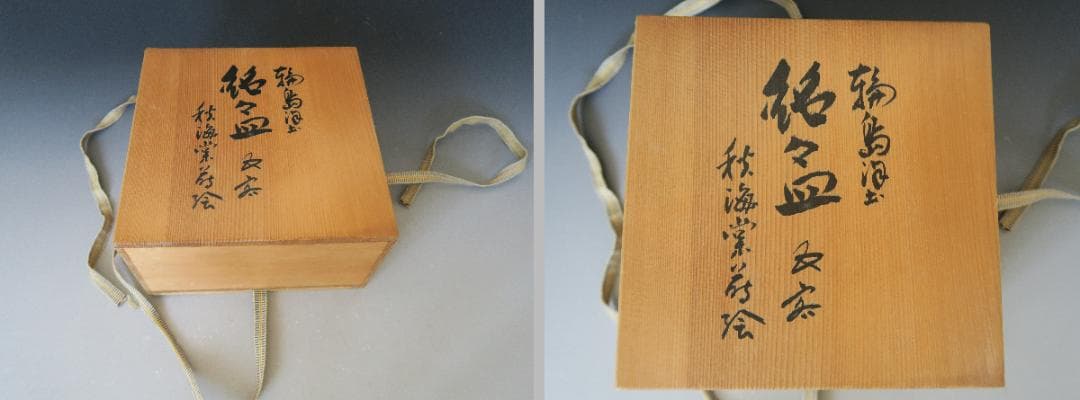 輪島塗
銘々皿 五客
秋海棠蒔絵
輪島塗
銘々皿 五客
秋海棠蒔絵